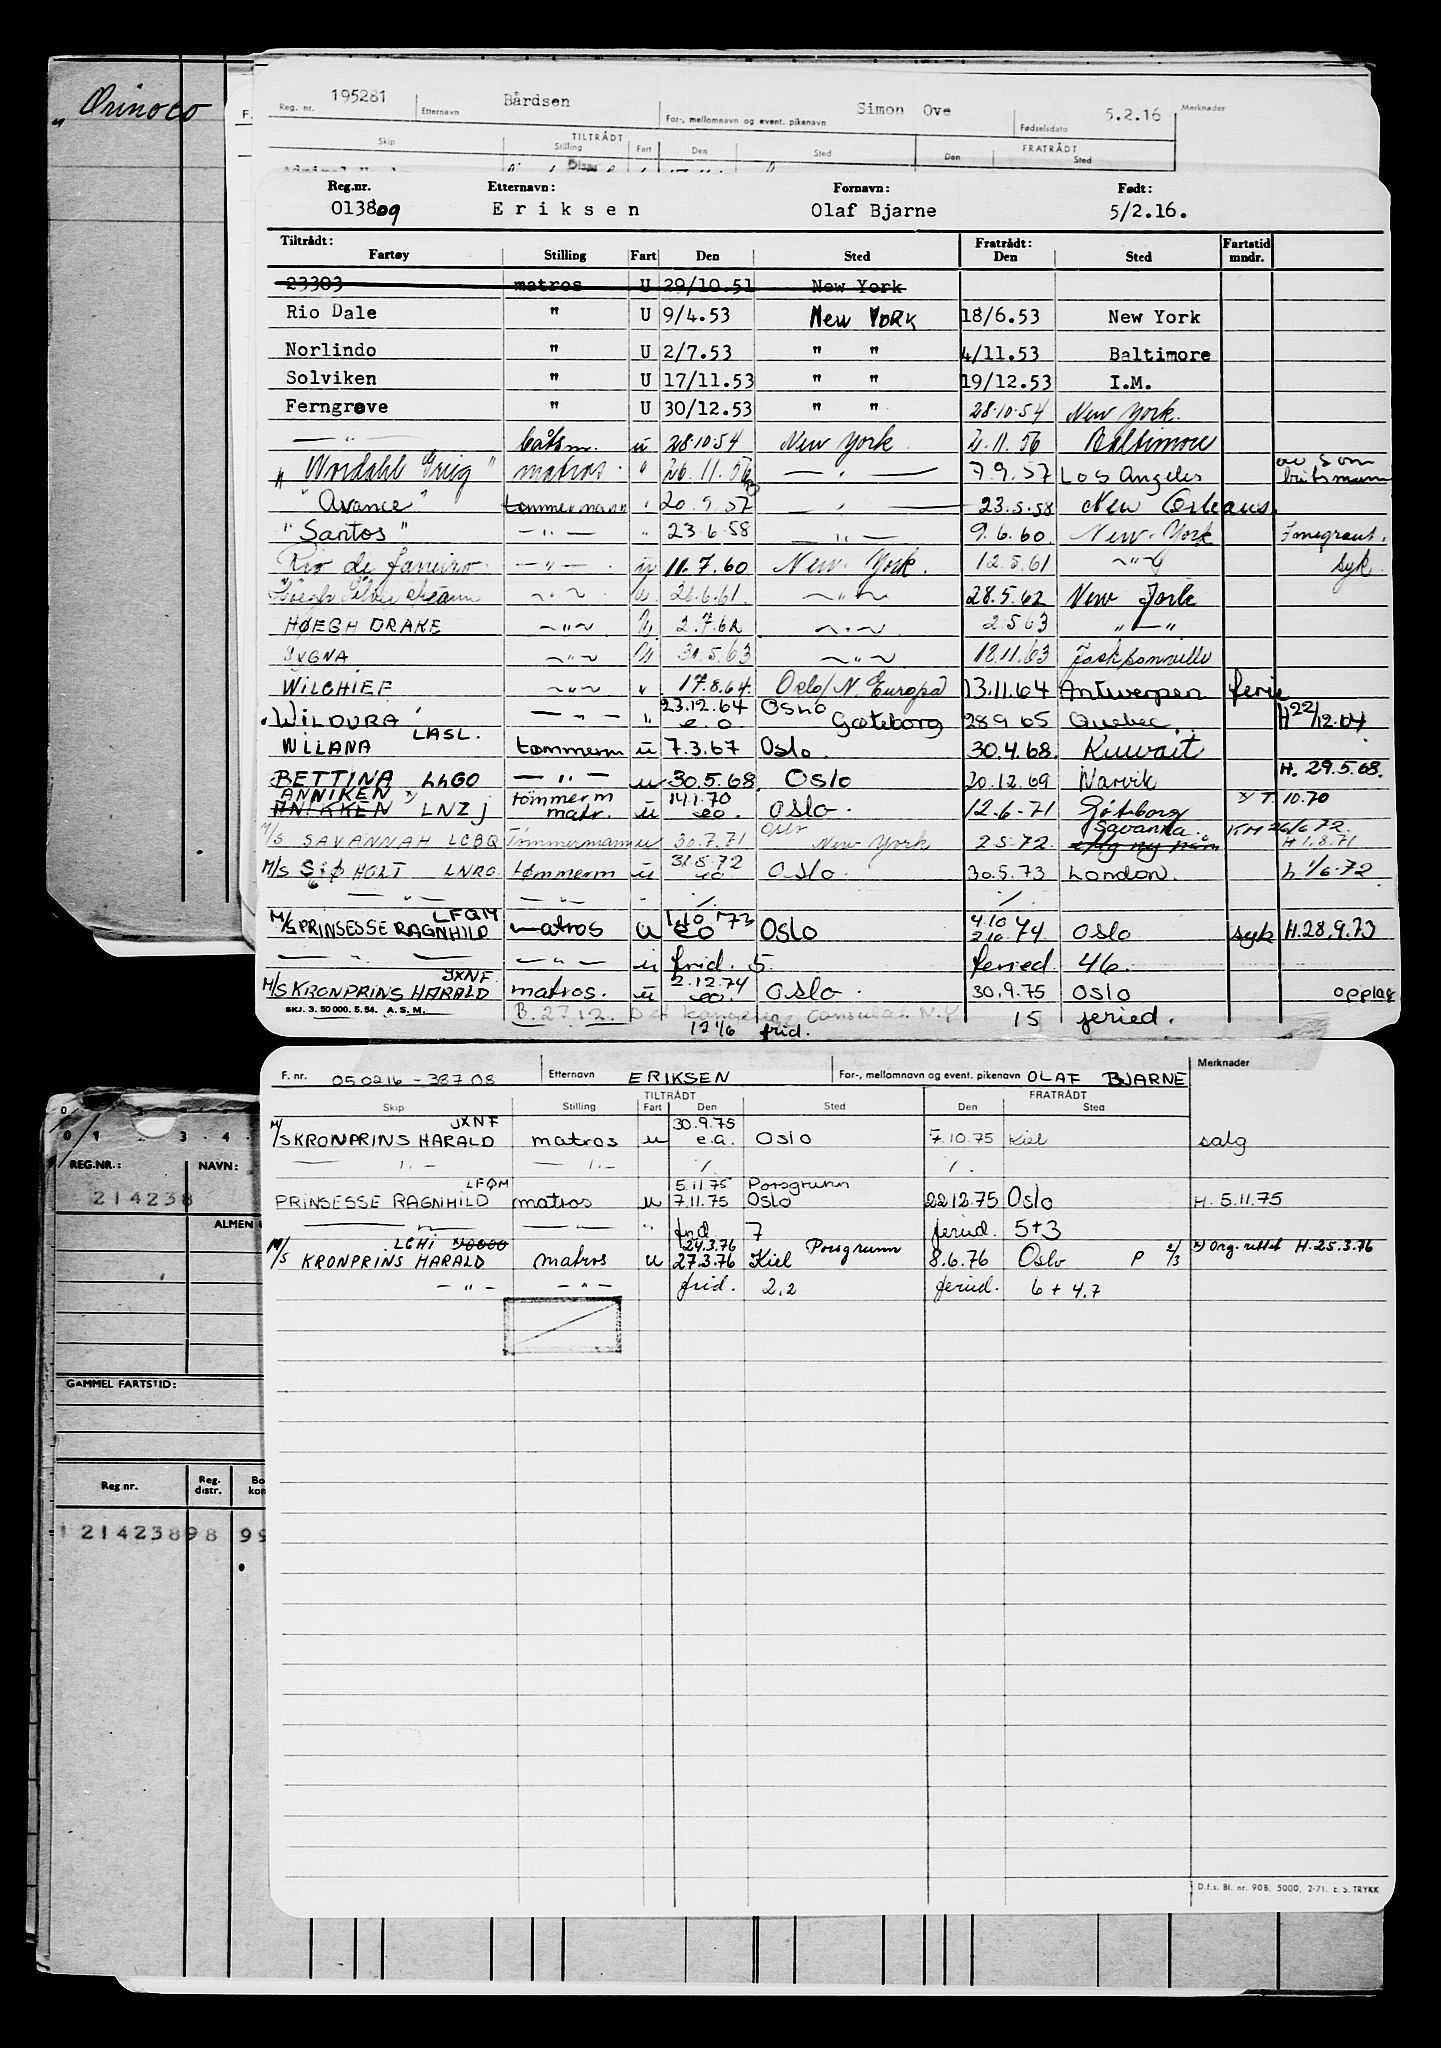 „ Orinoco
F.
Reg. nr. 195281 Etternavn Bårdsen For-, mellomnavn og event. pikenavn Simon Ove Fødselsdato 5.2.16 Merknader
TILTRÅDT FRATRÅDT
Skip Stilling Fart Den Sted Den Sted
Reg.nr. Etternavn: Fornavn: Født:
013809 Eriksen Olaf Bjarne 5/2.16.
Tiltrådt: Fratrådt: Fartstid
Fartøy Stilling Fart Den Sted Den Sted mndr.
23303 matros U 29/10.51 New York
Rio Dale " U 9/4.53 New York 18/6.53 New York
Norlindo " U 2/7.53 " " 4/11.53 Baltimore
Solviken " U 17/11.53 " " 19/12.53 I.M.
Ferngrove " U 30/12.53 " " 28.10.54 New York.
— " — båtsm. u 28.10.54 New York 2.11.56 Baltimore
„ Nordahl Grieg " matros. " 26.11.56 — " — 7.9.57 Los Angeles som båtsmann
" Avance " tømmermann " 20.9.57 — " — 23.5.58 New Orleans.
" Santos " — " — " 23.6.58 — " — 9.6.60. New York
Rio de Janeiro — " — u 11.7.60 New York. 12.5.61 — " — syk
Høegh Silverstream — " — u .6.61. — " — 28.5.62 New York
HØEGH DRAKE — " — u 2.7.62 — " — 2.5.63 " — "
SYGNA — " — u 31.5.63 — " — 18.11.63 Jacksonville
WILCHIEF — " — " 17.8.64. Oslo/N. Europa 13.11.64 Antwerpen ferie
WILDURA — " — " 23.12.64 e.o Oslo Gøteborg 28.9.65 Quebec. H 22/12.64
WILLANA LASL. tømmerm u 7.3.67 Oslo. 30.4.68. Kuwait
BETTINA LHGO — " — u 30.5.68 Oslo 20.12.69 Narvik H. 29.5.68.
ANNIKEN x)
ANIKKEN LNZJ tømmerm matr. u 14.1.70 eo. Oslo. 12.6.71 Göteborg x) T. 10.70
M/S SAVANNAH LCBQ Tømmermann u 30.7.71 Oslo New York 2.5.72. Savanna. KM 26/6 72. H 1.8.71
M/S SIØ HOLT LNRO tømmerm u 31.5.72 eo Oslo. 30.5.73 London. h 1/6.72
— " — — " — " ./. ./.
M/S PRINSESSE RAGNHILD LFQM matros u 1.10 '73 eo Oslo 4.10 2.10 74 Oslo syk H. 28.9.73
— " — — " — u frid. 5 feried 46.
M/S KRONPRINS HARALD JXNF matros. u 2.12.74 eo. Oslo. 30.9.75 Oslo opplag
SKJ. 3. 50 000. 5. 54. A. S. M. B. 27.12. 12 1/6 frid. 15 feried.
F. nr. 050216 - 38708 Etternavn ERIKSEN For-, mellomnavn og event. pikenavn OLAF BJARNE Merknader
TILTRÅDT FRATRÅDT
Skip Stilling Fart Den Sted Den Sted
M/S KRONPRINS HARALD JXNF matros u 30.9.75 e.a. Oslo 7.10.75 Kiel salg
— " — — " — ./. ./.
PRINSESSE RAGNHILD LFQM matros u 5.11.75 7.11.75 Porsgrunn Oslo 22.12.75 Oslo H. 5.11.75
— " — — " — " frid 7 feried. 5+3
M/S KRONPRINS HARALD LGHI matros u 24.3.76 27.3.76 Porsgrunn Kiel 8.6.76 Oslo P 2/3 x) Org. rettet H. 25.3.76
— " — — " — frid. 2,2 feried. 6 + 4.7
D.f.s. Bl. nr. 908. 5000, 2-71. E. S. TRYKK
0 1 . 3 . 4 .
REG.NR.: NAVN:
214238
ALMEN
GAMMEL FARTSTID:
Reg.nr. Reg. distr. Bo kon
1 21423898 99